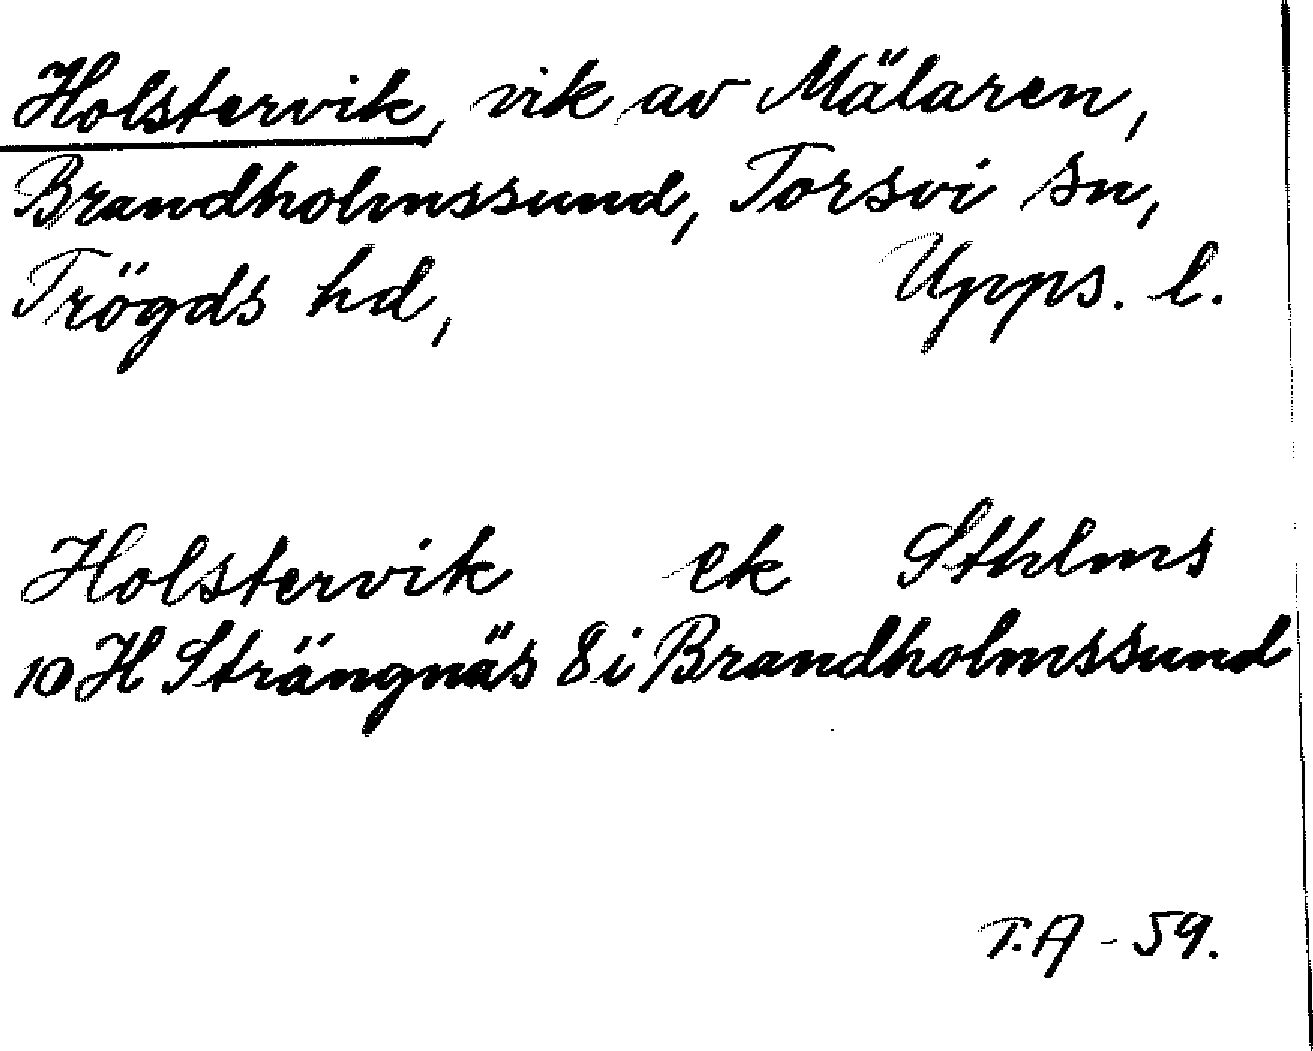 Holstervik, vik av Mälaren,
Brandholmssund, Torsvi sn,
Trögds hd, Upps. l.
Holstervik ek Sthlms
10 H Strängnäs 8 i Brandholmssund
T.A - 59.